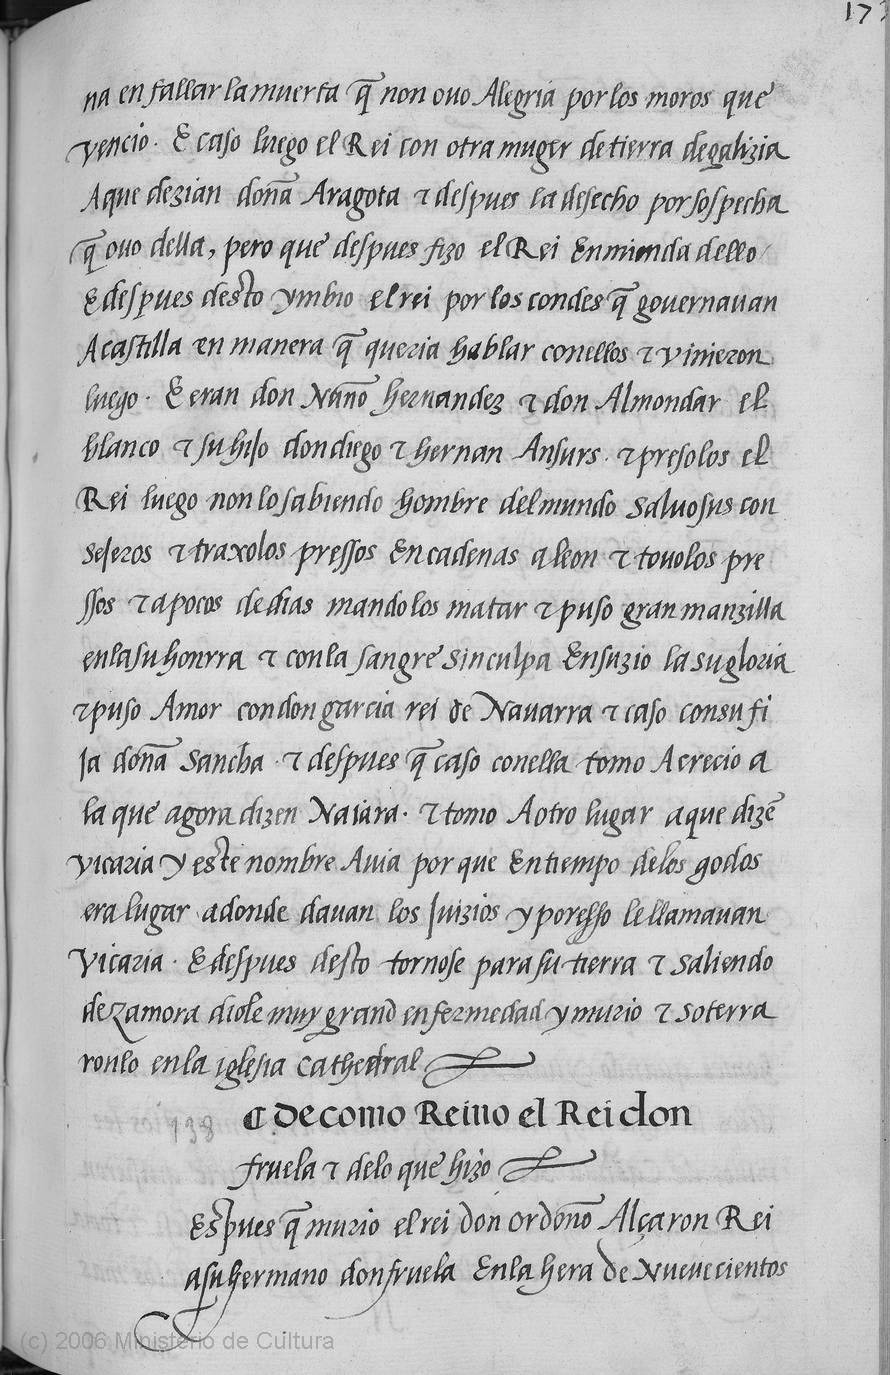 173
na en fallar la muerta q̃ non ovo Alegria por los moros que
vencio. E caso luego el Rei con otra muger de tierra de galizia
A que dezian doña Aragota τ despues la desecho por sospecha
q̃ ovo della, pero que despues fizo el Rei Enmienda dello
E despues desto ymbio el rei por los condes q̃ governauan
A castilla en manera q̃ queria hablar conellos τ vinieron
luego. E eran don Nuño hernandez τ don Almondar el
blanco τ su hijo don diego τ hernan Ansurs. τ presolos el
Rei luego non lo sabiendo hombre del mundo saluo sus con
sejeros τ traxolos pressos En cadenas a leon τ tovolos pre
ssos τ a pocos de dias mandolos matar τ puso gran manzilla
en la su honrra τ con la sangre sin culpa Ensuzio la su gloria
τ puso Amor con don garcia rei de Navarra τ caso con su fi
ja doña Sancha τ despues q̃ caso conella tomo A erecio a
la que agora dizen Naiara. τ tomo A otro lugar a que dizẽ
vicaria y este nombre Auia por que En tiempo de los godos
era lugar adonde dauan los Juizios y por esso le llamauan
Vicaria. E despues desto tornose para su tierra τ saliendo
de Zamora diole muy grand enfermedad y murio τ soterra
ronlo en la iglesia Cathedral
138 ¶ De como Reino el Rei don
fruela τ de lo que hizo
Espues q̃ murio el rei don ordoño Alçaron Rei
a su hermano don fruela En la hera de Nuevecientos
(c) 2006 Ministerio de Cultura